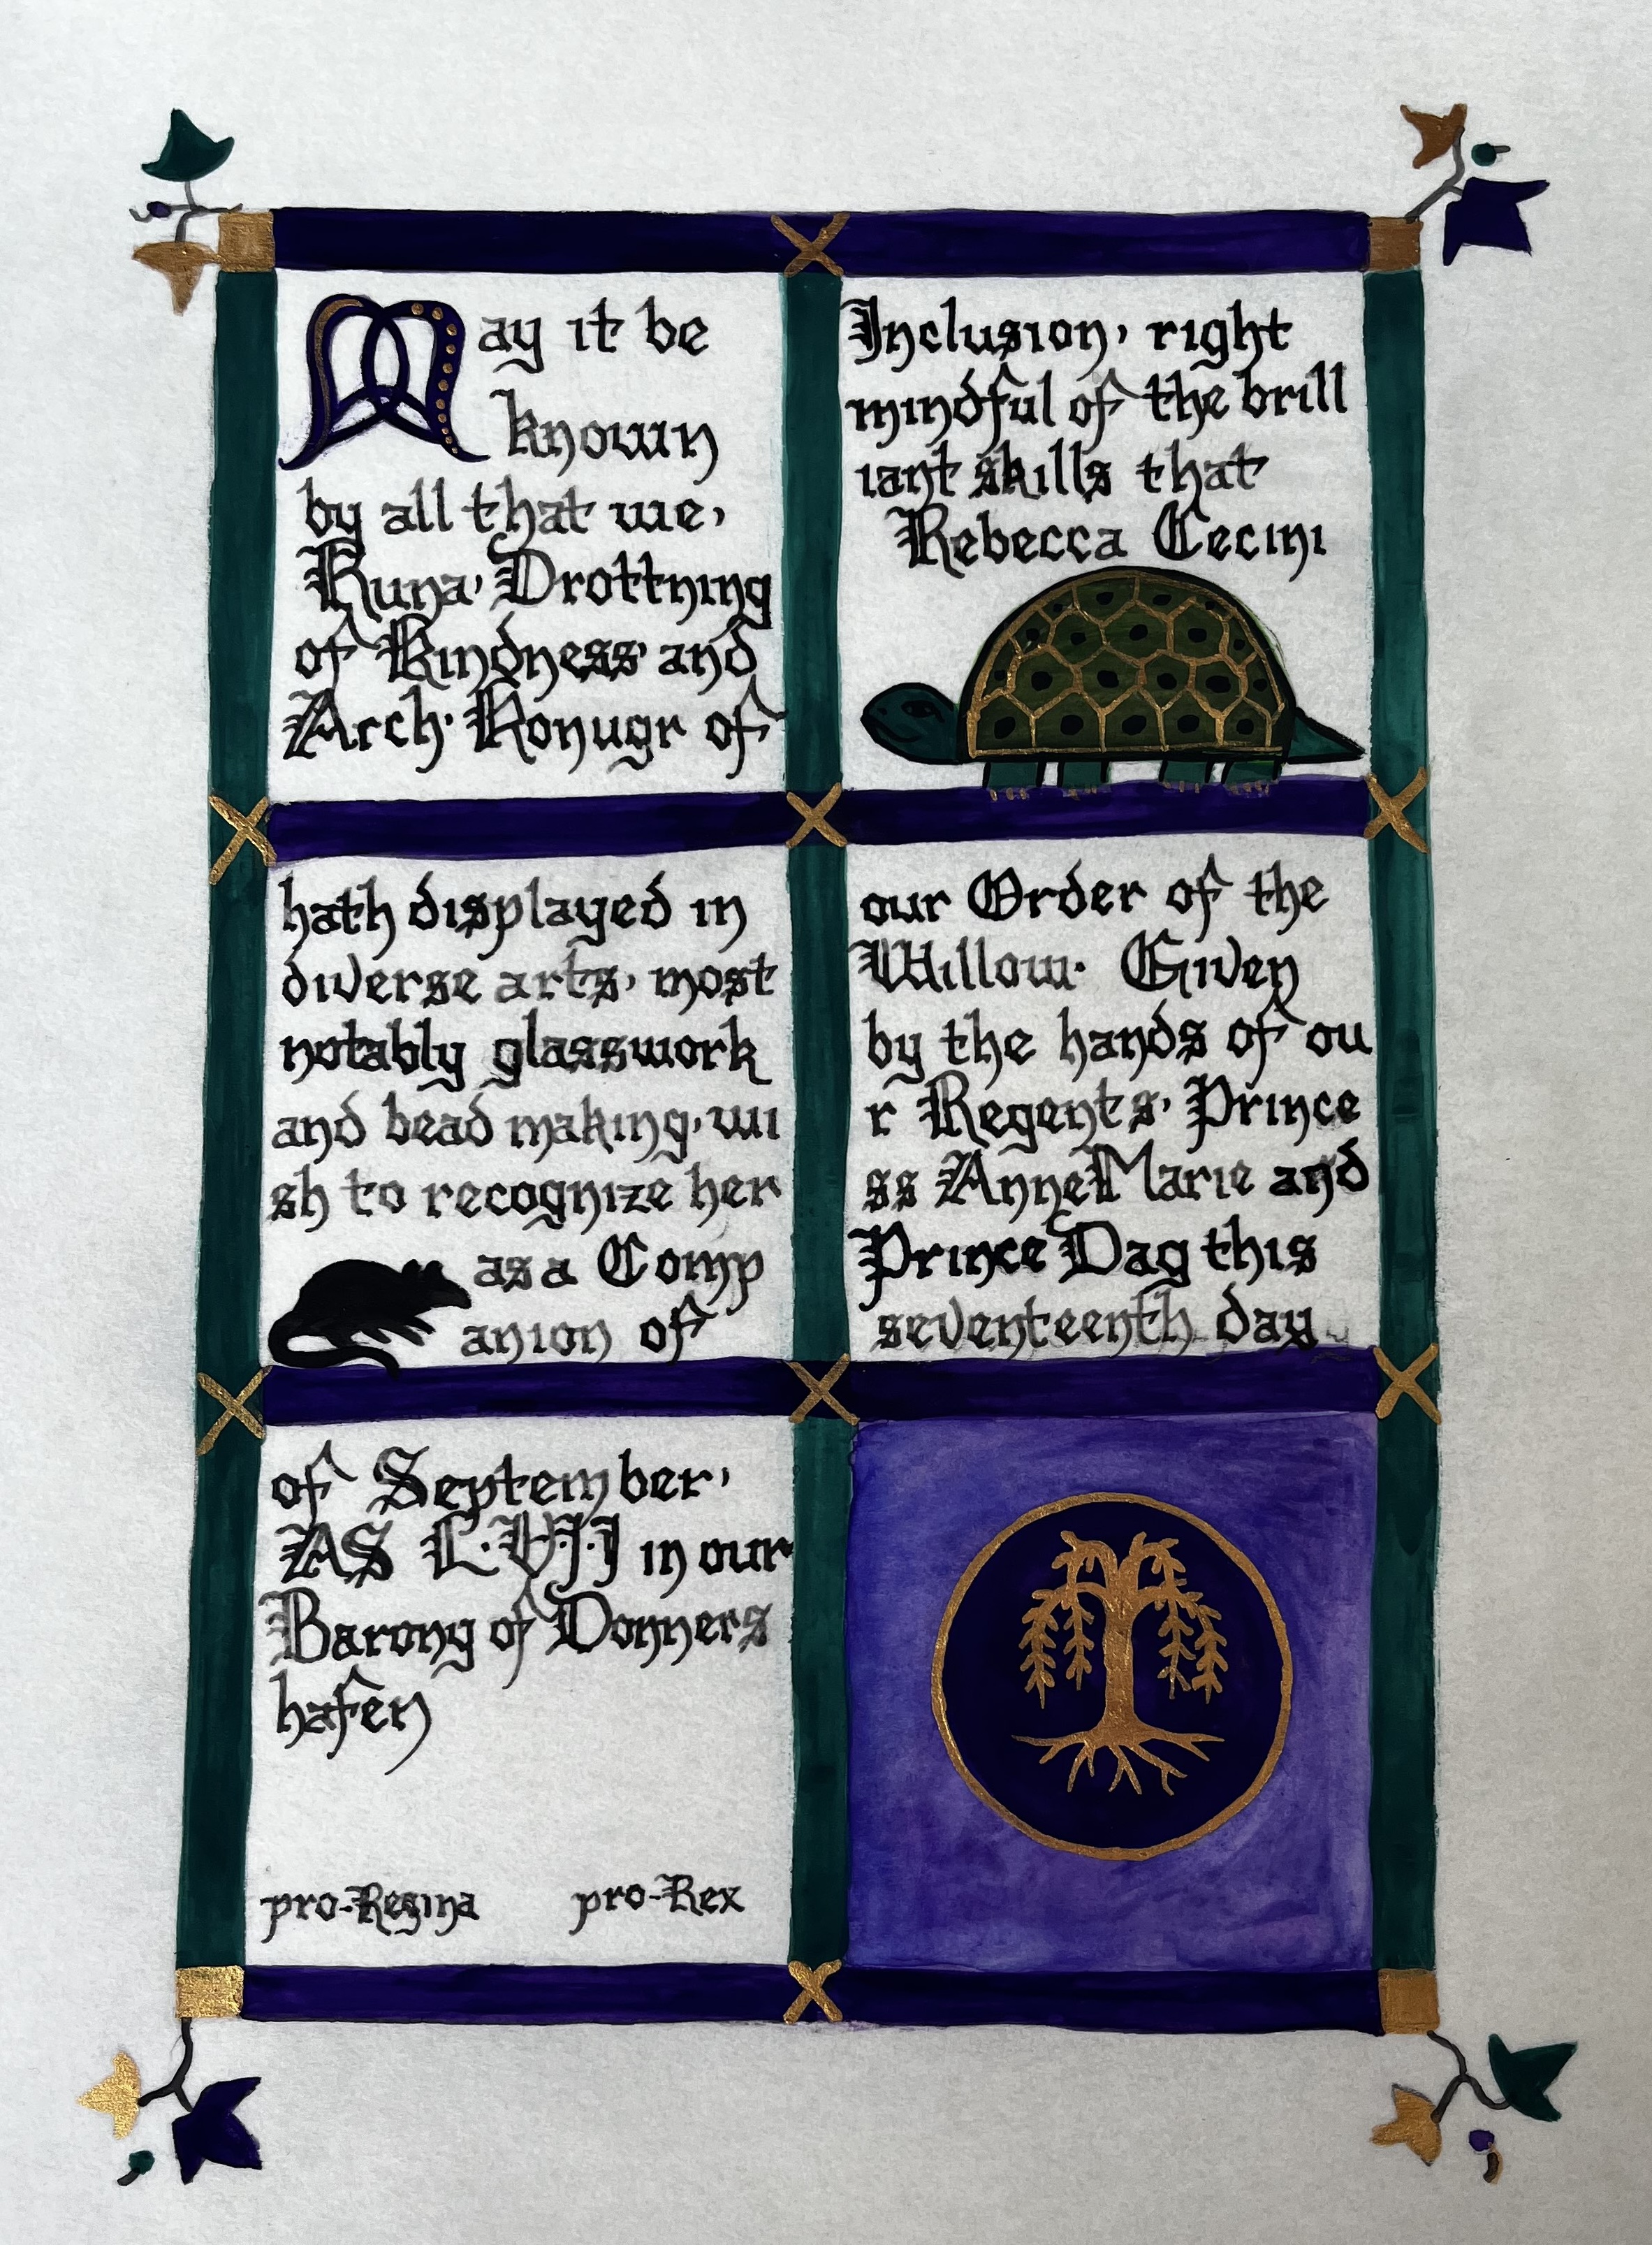 May it be
known
by all that we,
Runa, Drottning
of Kindness and
Arch, Konugr of
Inclusion, right
mindful of the brill
iant skills that
Rebecca Cecini
hath displayed in
diverse arts, most
notably glasswork
and bead making, wi
sh to recognize her
as a Comp
anion of
our Order of the
Willow. Given
by the hands of ou
r Regents, Prince
ss AnneMarie and
Prince Dag this
seventeenth day
of September,
AS L.V.I.I in our
Barony of Donners
hafen
pro-Regina pro-Rex